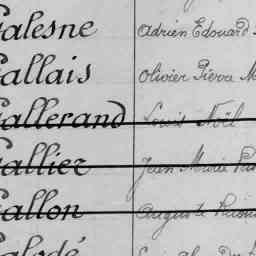 Galesne Adrien Edouard
Gallais Olivier Pierre M
Gallerand Louis Noël
Galliez Jean Marie
Gallon Auguste
Galodé